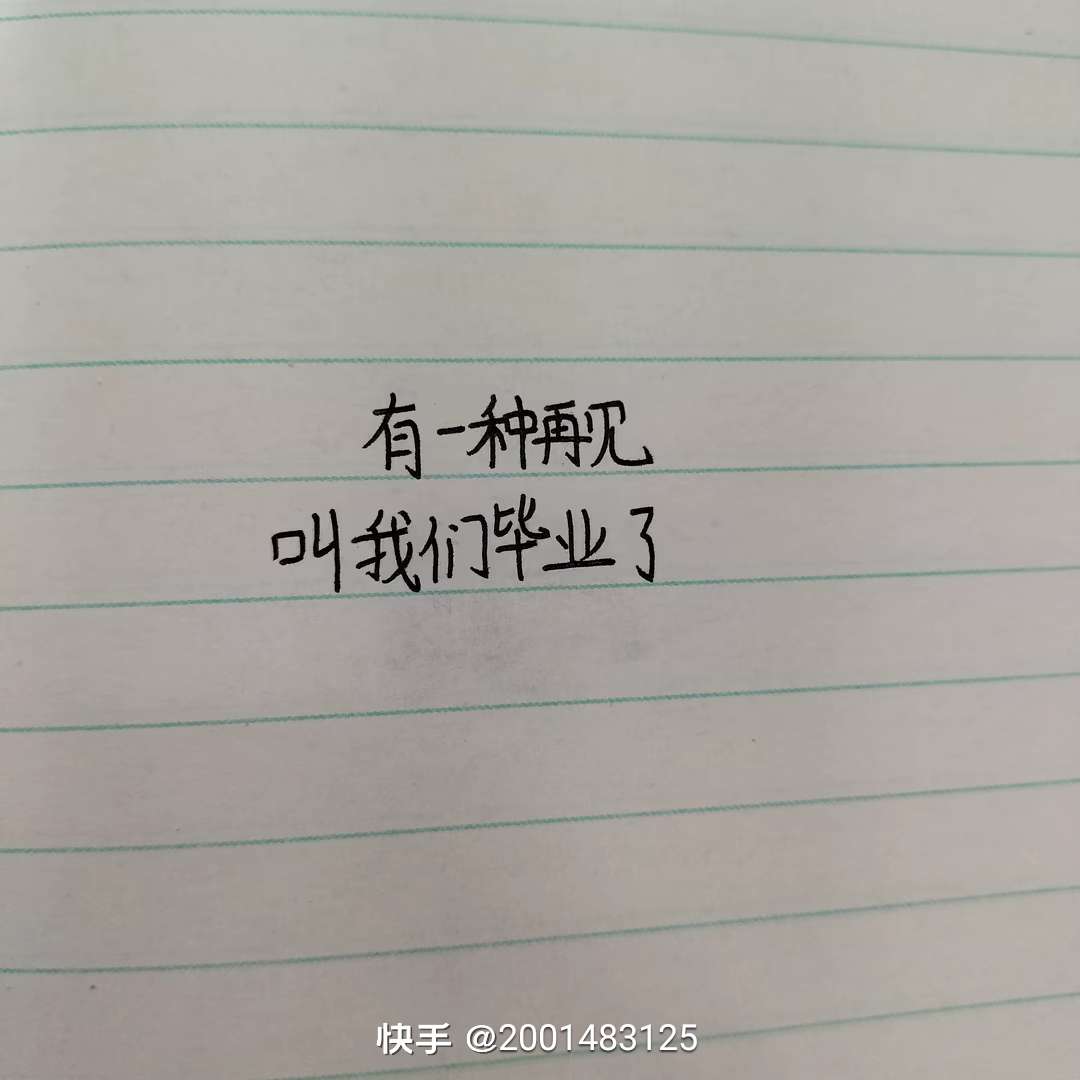 有一种再见
叫我们毕业了
快手 @2001483125